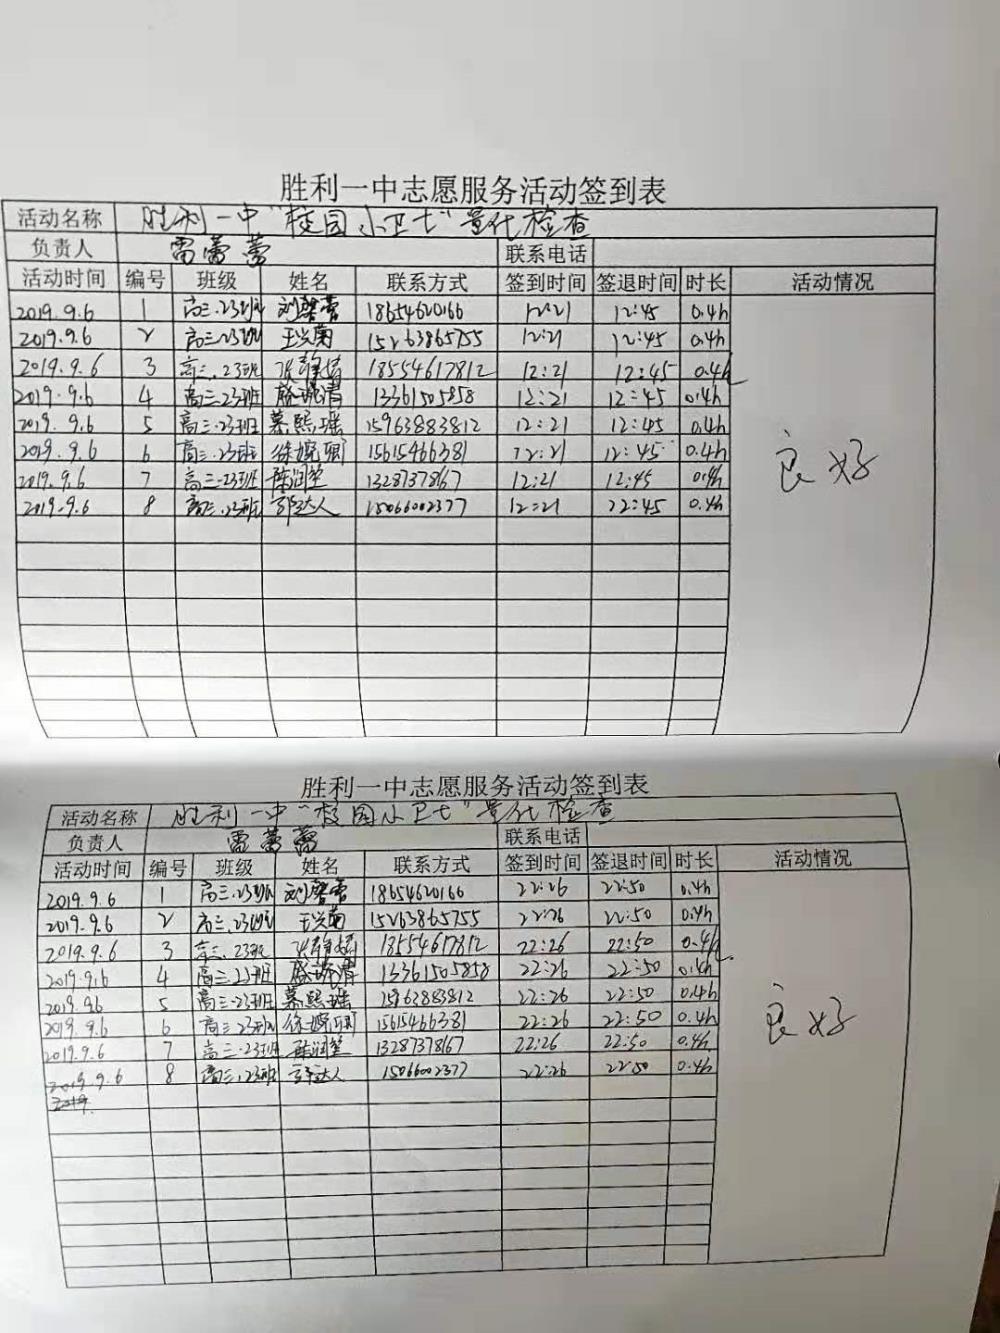 胜利一中志愿服务活动签到表
活动名称 胜利一中"校园小卫士"量化检查
负责人 雷蕾蕾 联系电话
活动时间 编号 班级 姓名 联系方式 签到时间 签退时间 时长 活动情况
2019.9.6 1 高三.23班 刘馨蕾 18654620166 12:21 12:45 0.4h
2019.9.6 2 高三.23班 王兴菊 15263865755 12:21 12:45 0.4h
2019.9.6 3 高三.23班 18554617812 12:21 12:45 0.4h
2019.9.6 4 高三.23班 13361505858 12:21 12:45 0.4h
2019.9.6 5 高三.23班 慕熙瑶 15963883812 12:21 12:45 0.4h
2019.9.6 6 高三.23班 15615466381 12:21 12:45 0.4h
2019.9.6 7 高三.23班 陈润莹 13287378167 12:21 12:45 0.4h
2019.9.6 8 高三.23班 15066002377 12:21 22:45 0.4h
良好
胜利一中志愿服务活动签到表
活动名称 胜利一中"校园小卫士"量化检查
负责人 雷蕾蕾 联系电话
活动时间 编号 班级 姓名 联系方式 签到时间 签退时间 时长 活动情况
2019.9.6 1 高三.23班 刘馨蕾 18654620166 22:26 22:50 0.4h
2019.9.6 2 高三.23班 王兴菊 15263865755 22:26 22:50 0.4h
2019.9.6 3 高三.23班 18554617812 22:26 22:50 0.4h
2019.9.6 4 高三.23班 13361505858 22:26 22:50 0.4h
2019.9.6 5 高三.23班 慕熙瑶 15963883812 22:26 22:50 0.4h
2019.9.6 6 高三.23班 15615466381 22:26 22:50 0.4h
2019.9.6 7 高三.23班 陈润莹 13287378167 22:26 22:50 0.4h
2019.9.6 8 高三.23班 15066002377 22:26 22:50 0.4h
2019.
良好